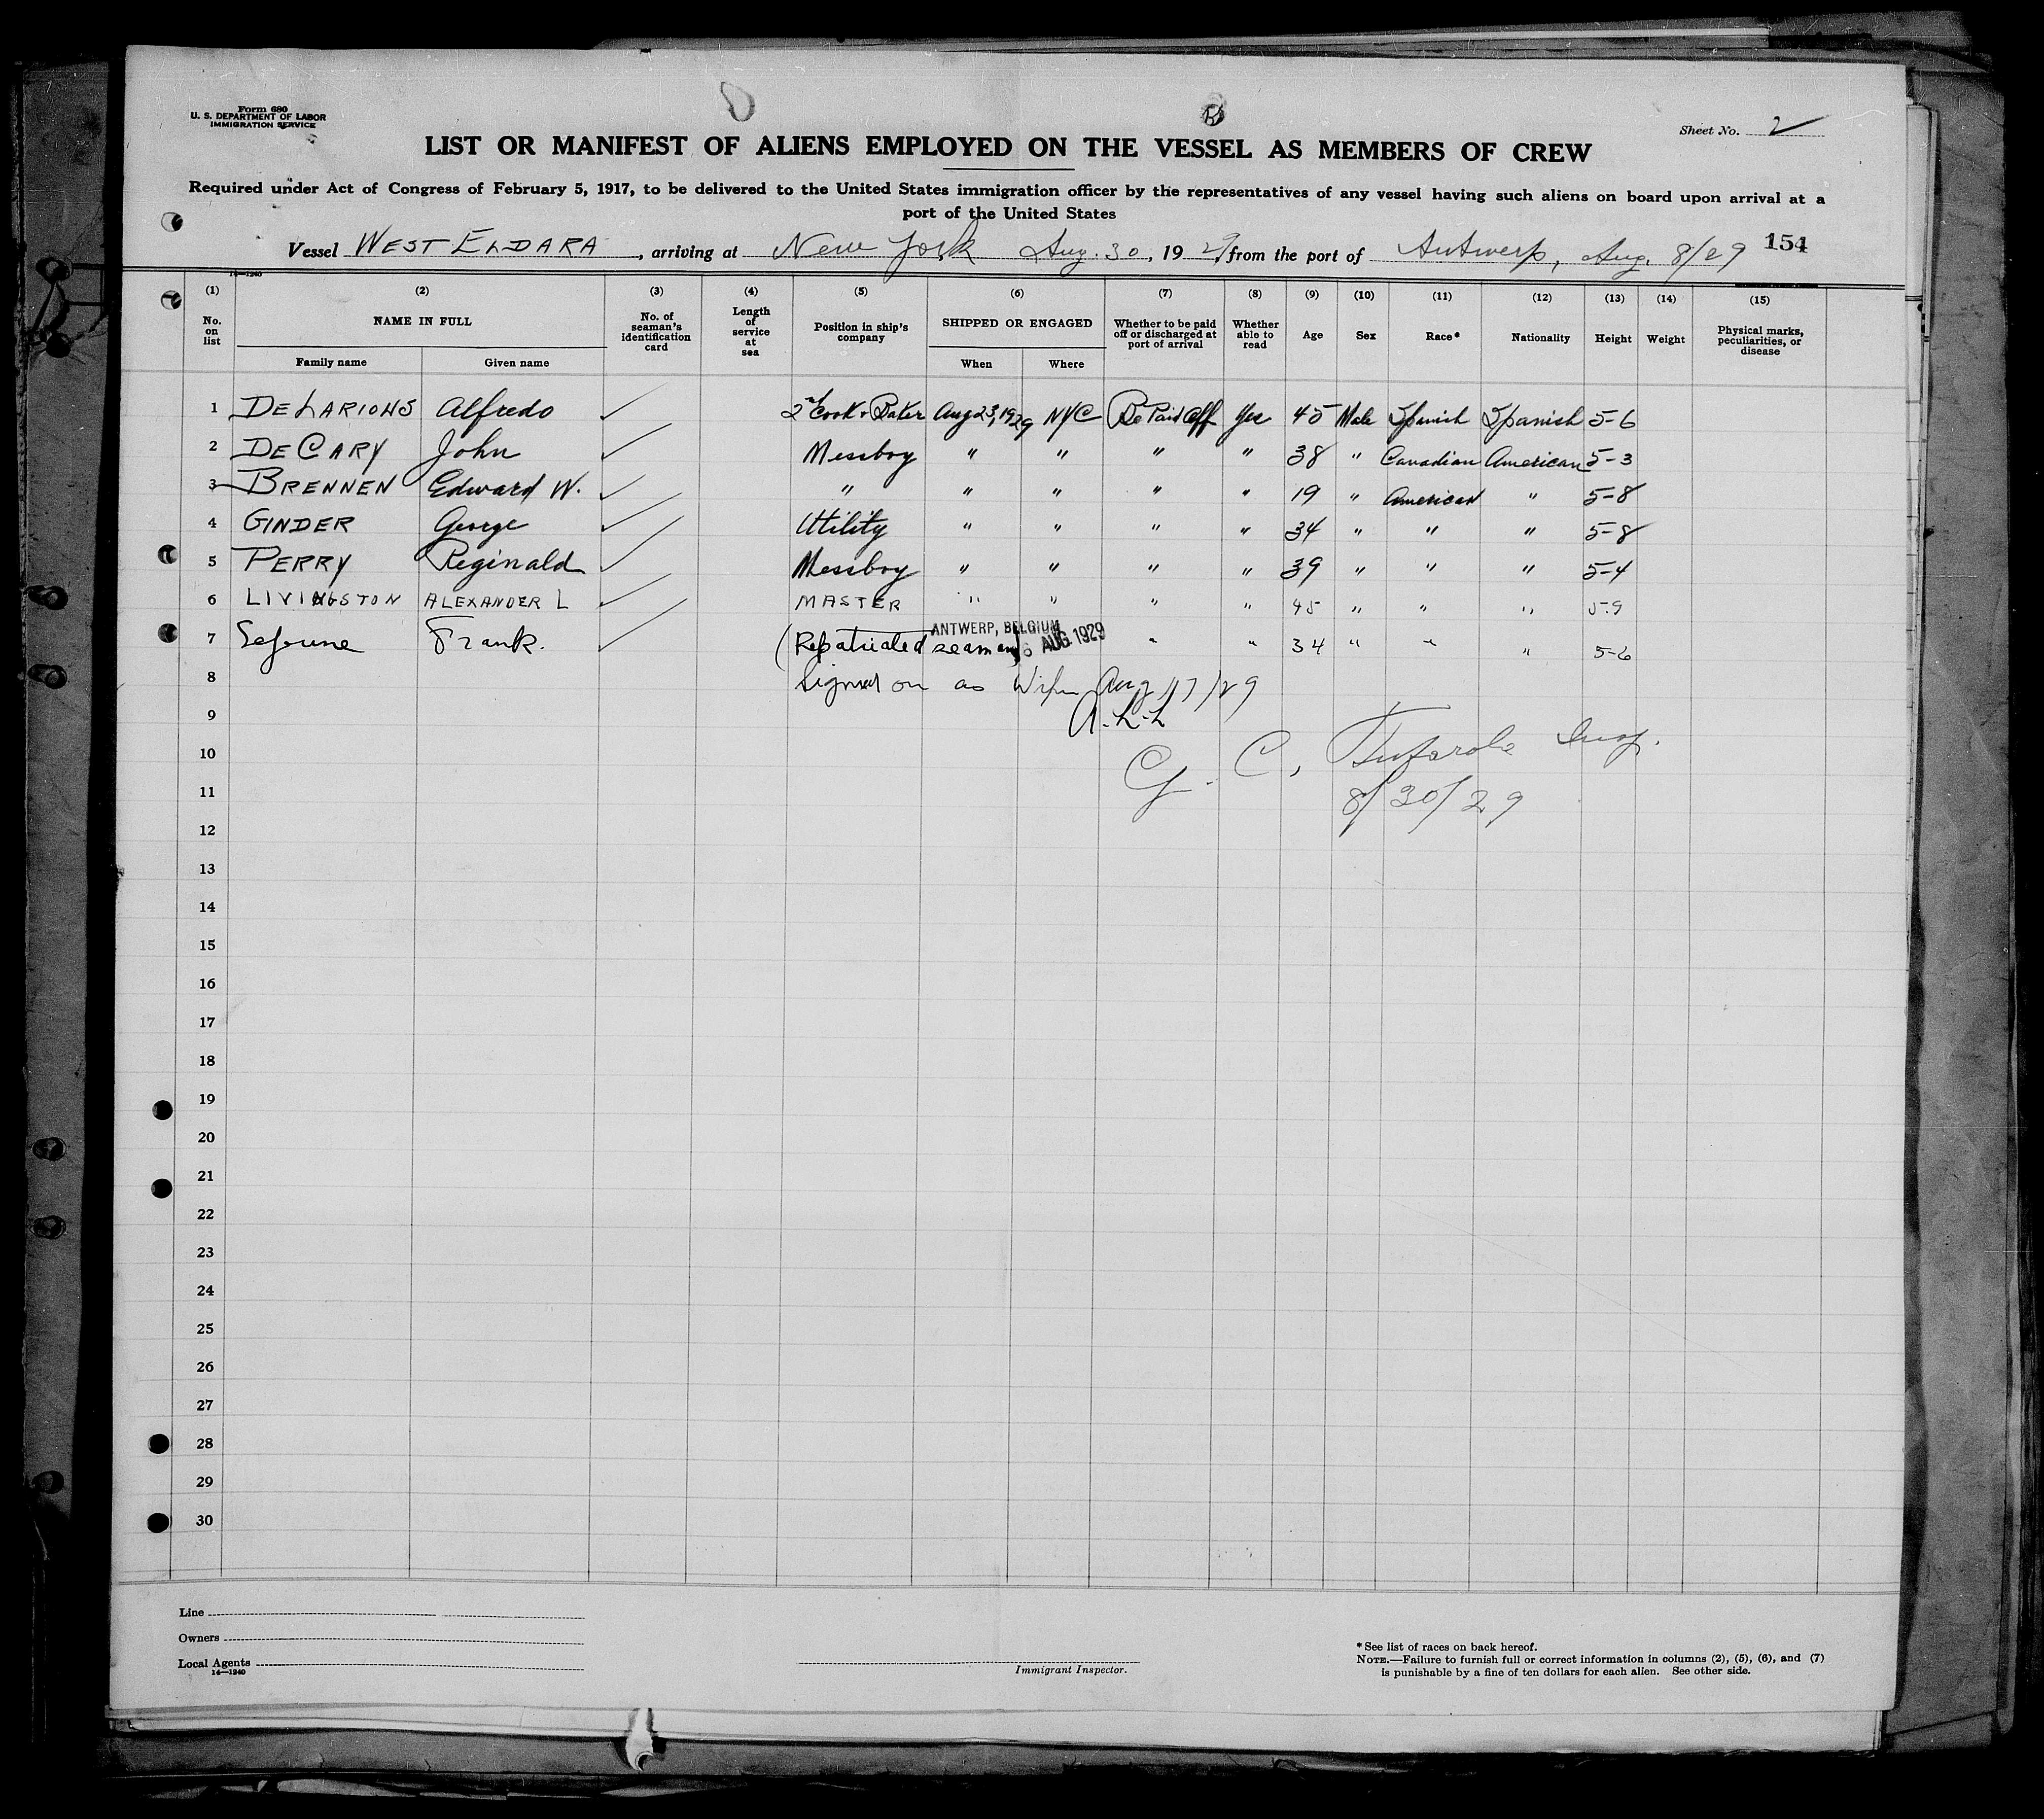 Form 680
U. S. DEPARTMENT OF LABOR
IMMIGRATION SERVICE
Sheet No. 2
LIST OR MANIFEST OF ALIENS EMPLOYED ON THE VESSEL AS MEMBERS OF CREW
Required under Act of Congress of February 5, 1917, to be delivered to the United States immigration officer by the representatives of any vessel having such aliens on board upon arrival at a
port of the United States
Vessel WEST ELDARA, arriving at New York Aug. 30, 1929, from the port of Antwerp, Aug. 8/29 154
14—1240
(1) (2) (3) (4) (5) (6) (7) (8) (9) (10) (11) (12) (13) (14) (15)
No. on list NAME IN FULL No. of seaman's identification card Length of service at sea Position in ship's company SHIPPED OR ENGAGED Whether to be paid off or discharged at port of arrival Whether able to read Age Sex Race* Nationality Height Weight Physical marks, peculiarities, or disease
Family name Given name When Where
1 DELARIOHS Alfredo 2nd Cook & Baker Aug 23, 1929 NYC Be Paid Off Yes 45 Male Spanish Spanish 5-6
2 DECARY John Messboy " " " " 38 " Canadian American 5-3
3 BRENNEN Edward W. " " " " " 19 " American " 5-8
4 GINDER George Utility " " " " 34 " " " 5-8
5 PERRY Reginald Messboy " " " " 39 " " " 5-4
6 LIVINGSTON ALEXANDER L MASTER " " " " 45 " " " 5-9
7 Lejeune Frank. (Repatriated seaman) ANTWERP, BELGIUM 6 AUG 1929 " " 34 " " " 5-6
8 Signed on as Wiper Aug 17/29
9 A.L.L
10 G. C. Insp.
11 8/30/29
12
13
14
15
16
17
18
19
20
21
22
23
24
25
26
27
28
29
30
Line
Owners
Local Agents
14—1240
Immigrant Inspector.
* See list of races on back hereof.
NOTE.—Failure to furnish full or correct information in columns (2), (5), (6), and (7)
is punishable by a fine of ten dollars for each alien. See other side.